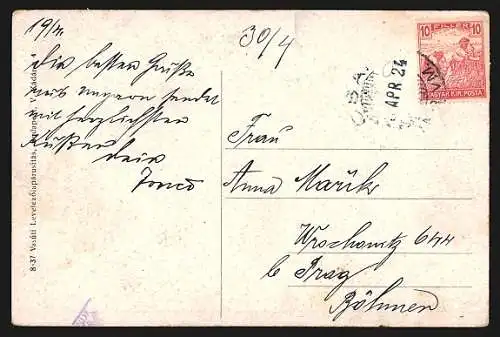 19/4.
30/4
die besten Grüße
aus Ungarn sendet
mit herzlichsten
Küssen dein
10 FILLÉR 10
MAGYAR KIR. POSTA
CSA
APR 24
Frau
Anna Mařik
Wrschowitz 644
b Prag
Böhmen
8-37 Vasúti Levelezőlapárusítás, Budapest, V.